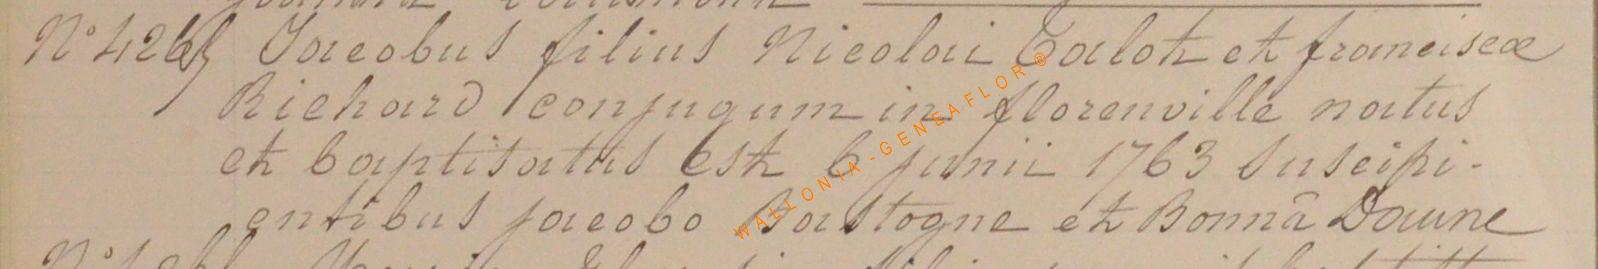 N° 4265 Jacobus filius Nicolai Talot et franciscæ
Richard conjugum in florenville natus
et baptisatus est 6 junii 1763 Suscipi-
entibus jacobo Bastogne et Bonnâ Daune
WALLONIA-GENEAFLOR®